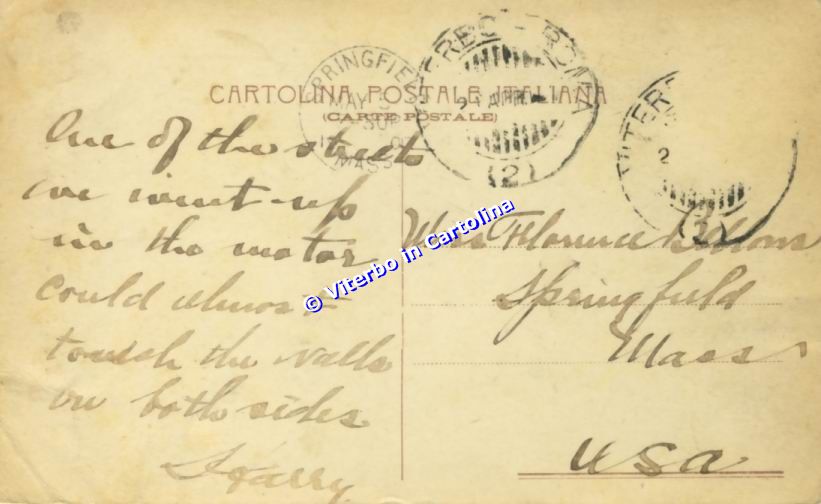 CARTOLINA POSTALE ITALIANA
(CARTE POSTALE)
SPRINGFIELD
MAY 3
MASS
VITERBO - ROMA
21 APR
(2)
VITERBO
2
(2)
One of the streets
we went up
in the motor
could almost
touch the walls
on both sides
Harry
Miss Florence
Springfield
Mass
USA
© Viterbo in Cartolina